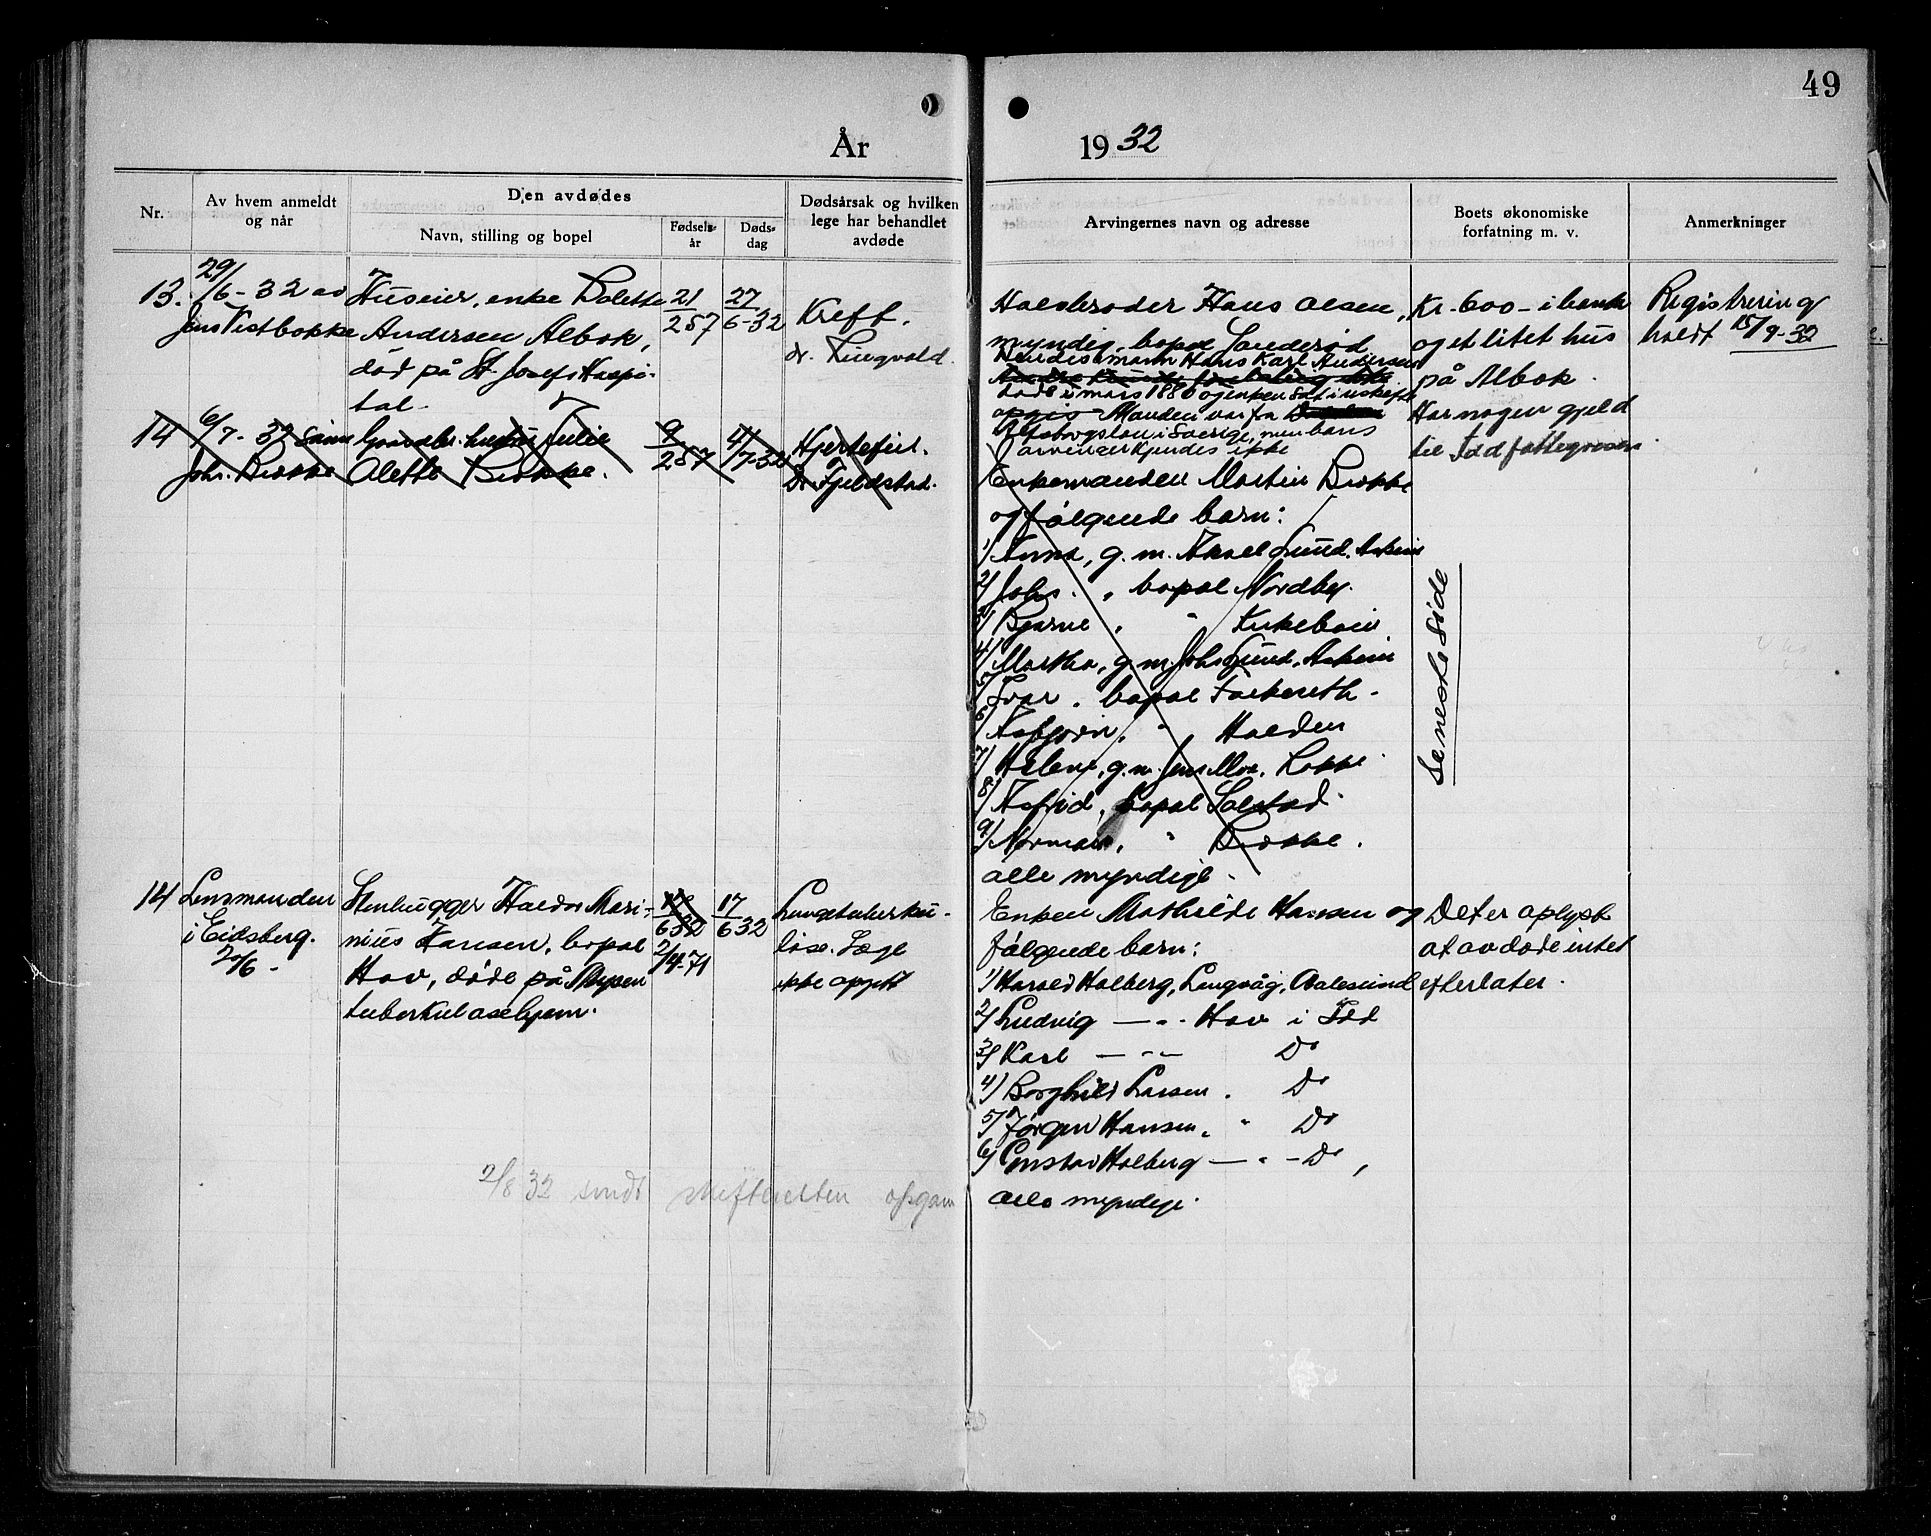 49
År 1932
Nr.
Av hvem anmeldt
og når
Den avdødes
Navn, stilling og bopel
Fødsels-
år
Døds-
dag
Dødsårsak og hvilken
lege har behandlet
avdøde
Arvingernes navn og adresse
Boets økonomiske
forfatning m. v.
Anmerkninger
13.
29/6-32 av
Jens Vestbøkke
Huseier, enke Bolette
Andersen Albok,
død på St. Josefs Hospi-
tal.
21/2 57
27/6-32
Kreft.
dr. Lingvold.
Halvbroder Hans Olsen,
myndig, bopel
Hendes mann Hans Karl Andersen
døde i mars 1880 og enken sat i uskifte
Manden var fra
Elfsborgslen i Sverige, men hans
arvinger kjendes ikke
Kr. 600 - i bank
og et litet hus
på Albok.
Har nogen gjeld
til Idd fattigvesen.
Registrering
holdt 15/9-32
14
6/7-32 sønn
Joh. Brokke
Gaardbr. hustru Julie
Alette Brokke.
9/2 57
4/7-32
Hjertefeil.
Dr. Fjeldstad.
Enkemanden Martin Brokke
og følgende barn:
1/ Anna, g. m. Aksel Lund. Askim
2/ Johs. , bopel Nordby.
3/ Bjarne , "
4/ Martha, g. m. Johs Lund, Askim
5/ Ivar . bopel Torkereth.
6/ Asbjørn, " Halden
7/ Helene, g. m. Jens Moe. Lokke
8/ Astrid, bopel Solstad.
9/ Norman, " Brokke.
alle myndige.
Se neste side
14
Lensmanden
i Eidsberg.
20/6 -
Stenhugger Haldor Mari-
nius Hansen, bopel
Hov, døde på Mysen
tuberkulosehjem.
17/6 32
2/4-71
17/6 32
Lungetuberku-
lose. Læge
ikke opgitt
Enken Mathilde Hansen og
følgende barn:
1/ Harald Holberg, Langvåg, Aalesund
2/ Ludvig — " - Hov i Idd
3/ Karl — " — Do
4/ Borghild Larsen . Do
5/ Jørgen Hansen, " Do
6/ Gustav Holberg — " - Do ,
alle myndige.
Det er oplyst
at avdøde intet
efterlater.
2/8 32 sendt skifteretten opgave